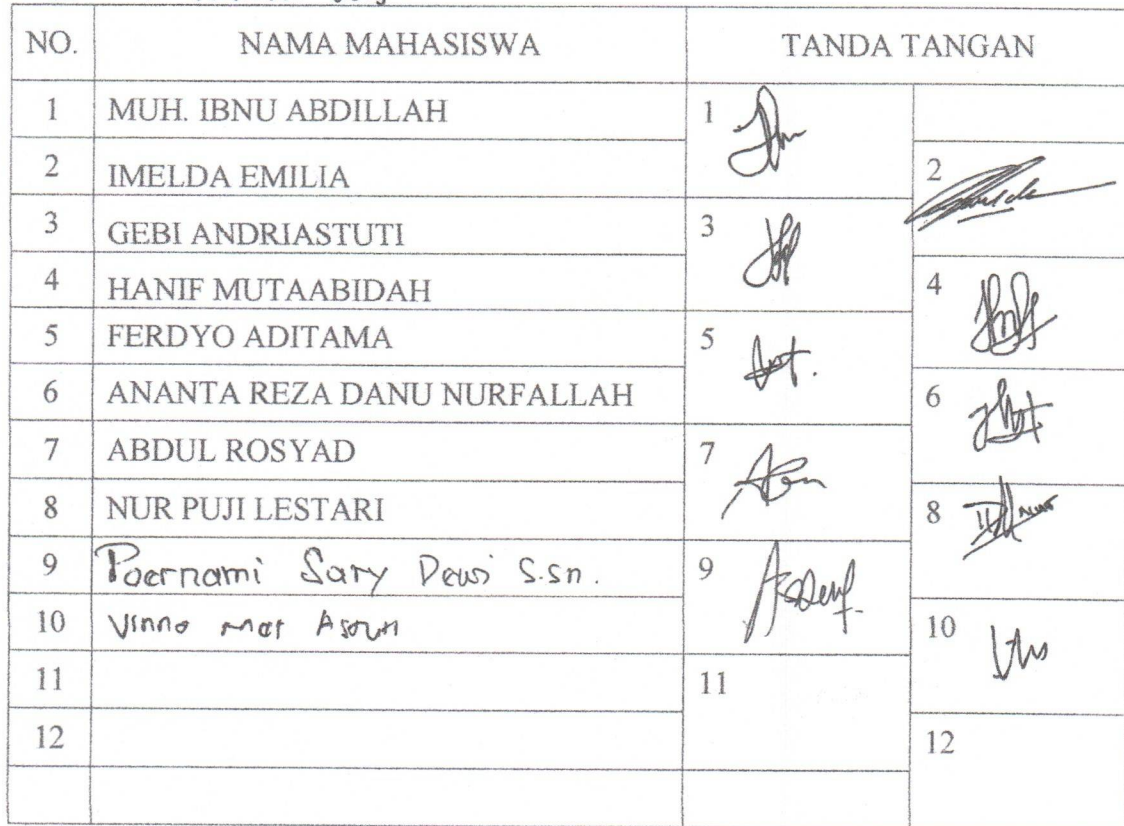 NO. NAMA MAHASISWA TANDA TANGAN
1 MUH. IBNU ABDILLAH 1
2 IMELDA EMILIA 2
3 GEBI ANDRIASTUTI 3
4 HANIF MUTAABIDAH 4
5 FERDYO ADITAMA 5
6 ANANTA REZA DANU NURFALLAH 6
7 ABDUL ROSYAD 7
8 NUR PUJI LESTARI 8
9 Poernami Sary Dewi S.sn. 9
10 Vinno 10
11 11
12 12